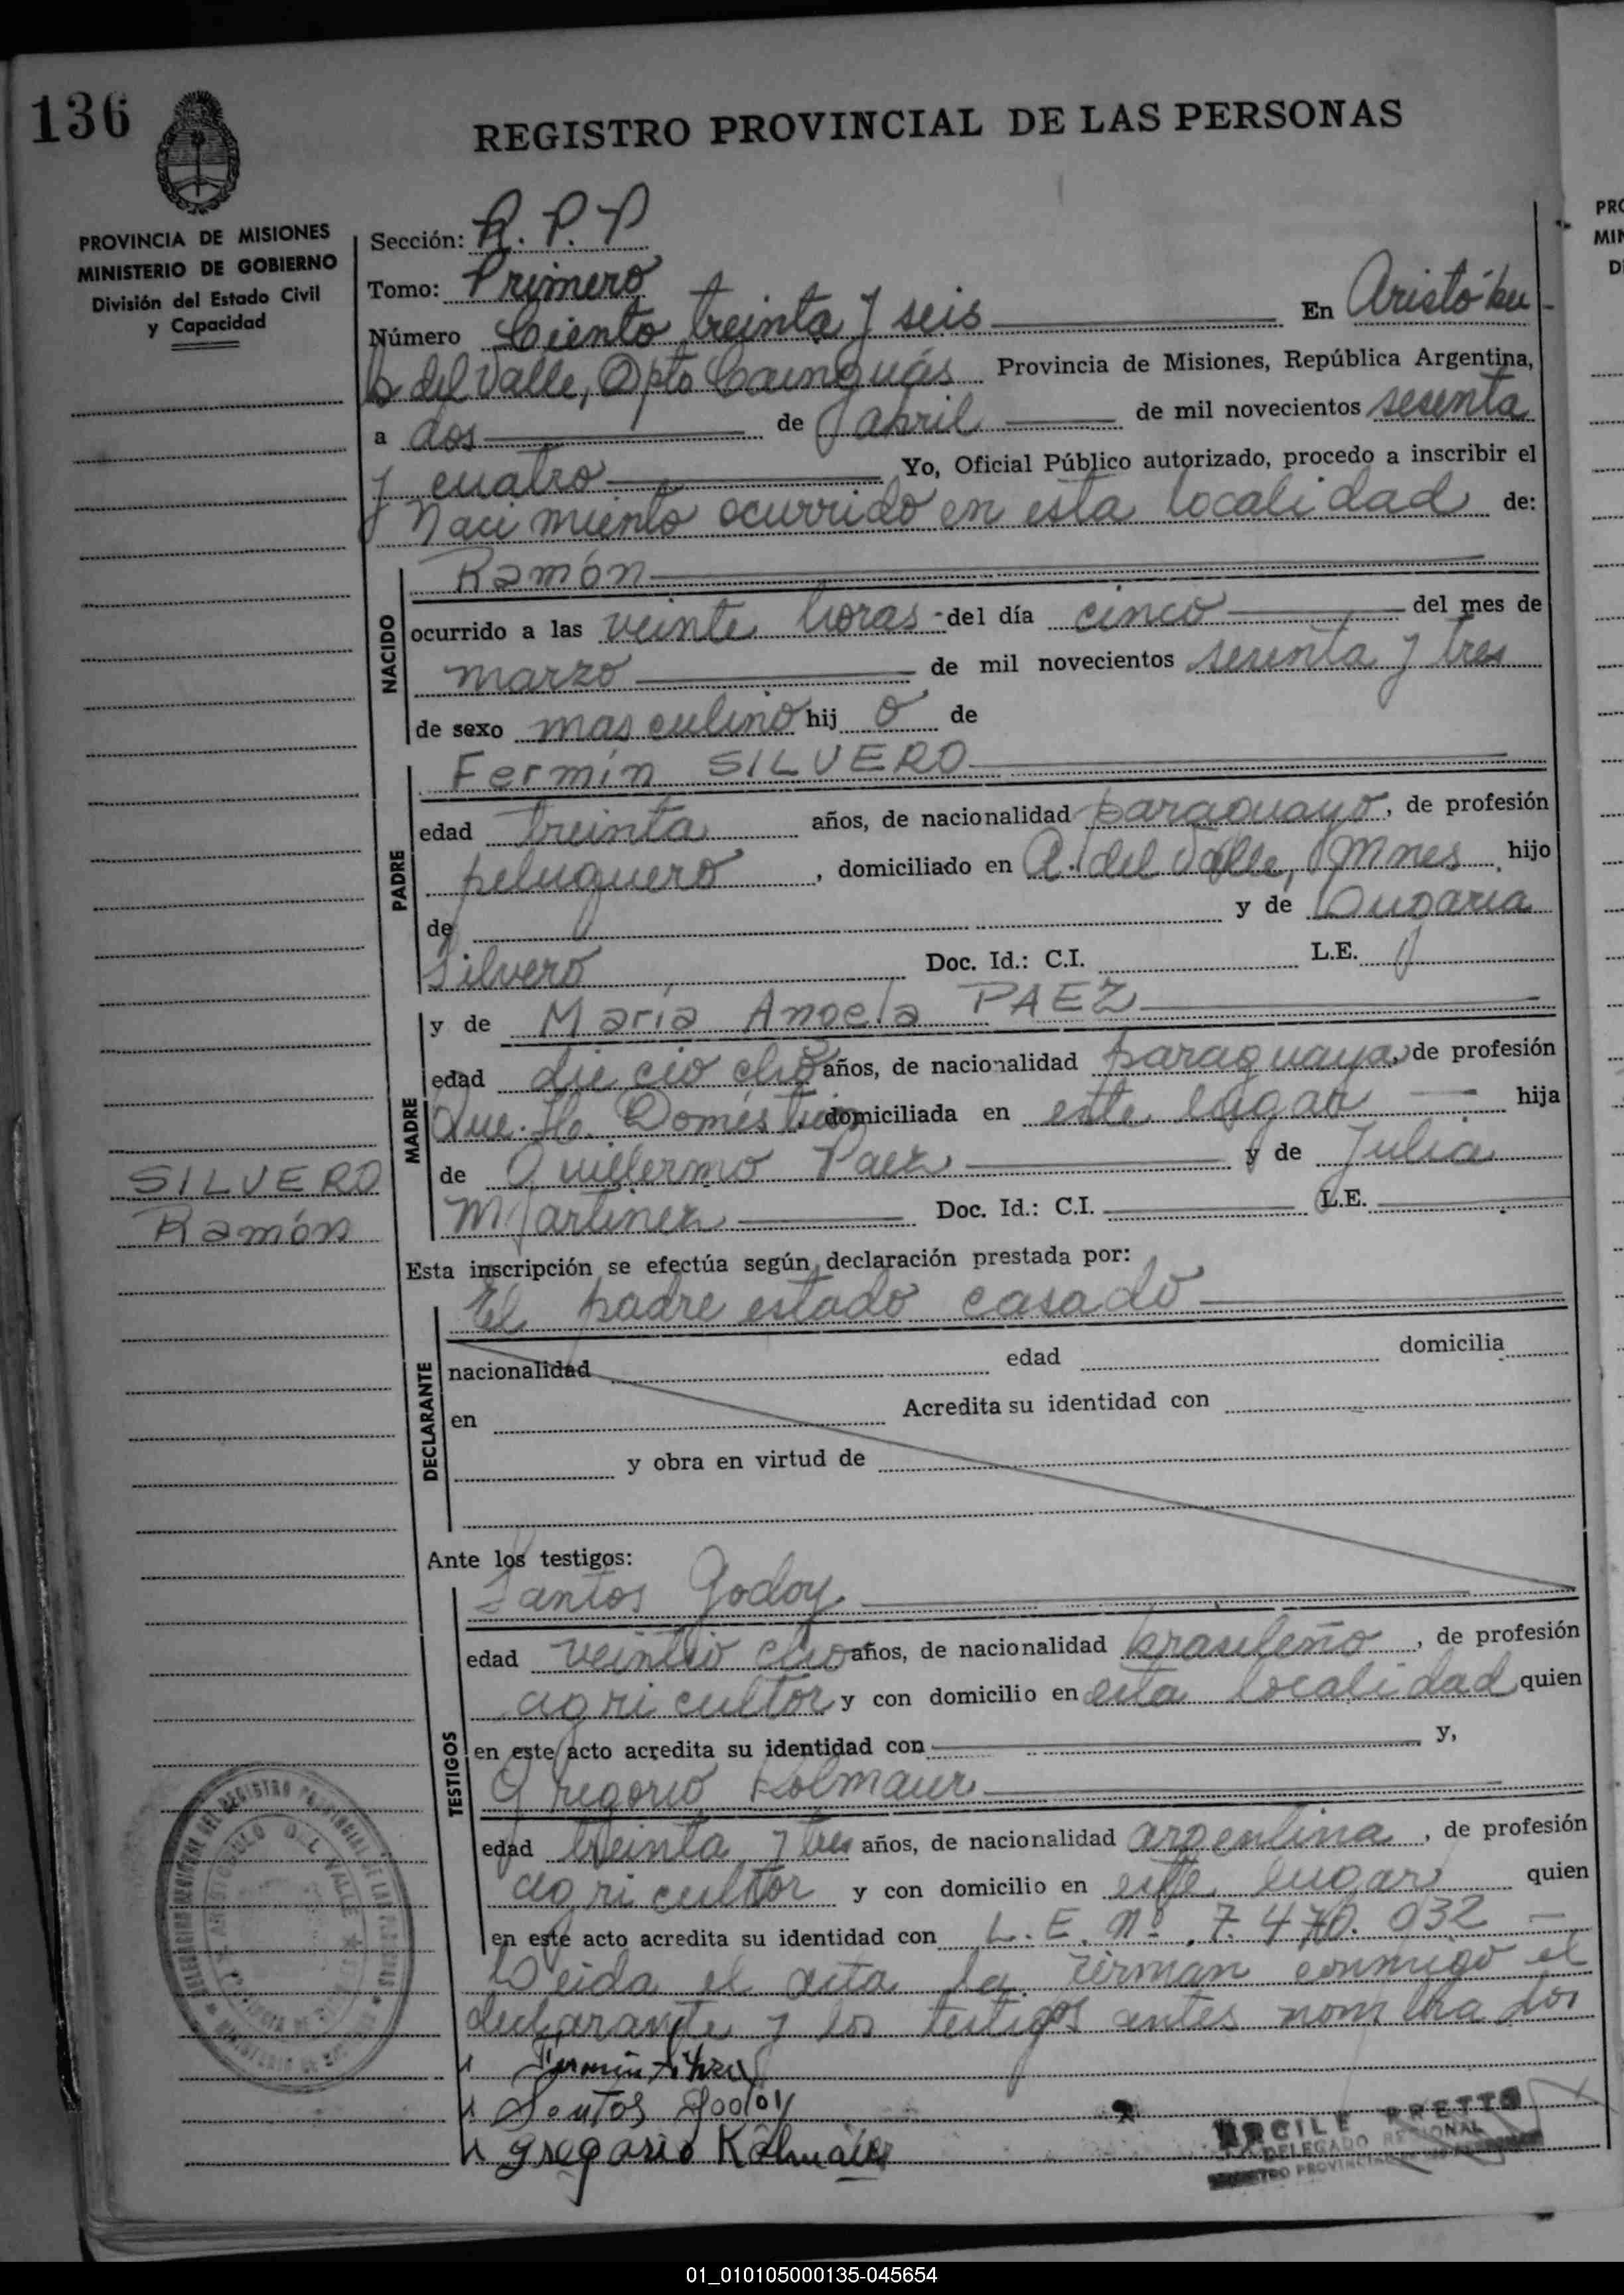 136
REGISTRO PROVINCIAL DE LAS PERSONAS
PROVINCIA DE MISIONES
MINISTERIO DE GOBIERNO
División del Estado Civil
y Capacidad
Sección: R. P. P
Tomo: Primero
Número Ciento treinta y seis En Aristóbu-
lo del Valle, Dpto Cainguás Provincia de Misiones, República Argentina,
a dos de abril de mil novecientos sesenta
y cuatro Yo, Oficial Público autorizado, procedo a inscribir el
Nacimiento ocurrido en esta localidad de:
NACIDO
Ramón
ocurrido a las veinte horas del día cinco del mes de
marzo de mil novecientos sesenta y tres
de sexo masculino hijo de
PADRE
Fermín SILVERO
edad treinta años, de nacionalidad paraguayo, de profesión
peluquero, domiciliado en A. del Valle, Mnes. hijo
de y de
Silvero Doc. Id.: C.I. L.E.
MADRE
y de María Angela PAEZ
edad dieciocho años, de nacionalidad paraguaya, de profesión
Que. H. Domésticos domiciliada en este lugar hija
de Guillermo Paez y de Julia
Martinez Doc. Id.: C.I. L.E.
SILVERO
Ramón
Esta inscripción se efectúa según declaración prestada por:
DECLARANTE
El padre estado casado
nacionalidad edad domicilia
en Acredita su identidad con
y obra en virtud de
Ante los testigos:
TESTIGOS
Santos Godoy
edad veintiocho años, de nacionalidad brasileño, de profesión
agricultor y con domicilio en esta localidad quien
en este acto acredita su identidad con y,
Gregorio Kolmaur
edad treinta y tres años, de nacionalidad argentina, de profesión
agricultor y con domicilio en este lugar quien
en este acto acredita su identidad con L. E. Nº. 7.470.032
Leida el acta la firman conmigo el
declarante y los testigos antes nombrados
Fermin Silvero
Santos Godoy
Gregorio
DELEGADO REGIONAL
REGISTRO PROVINCIAL
01_010105000135-045654